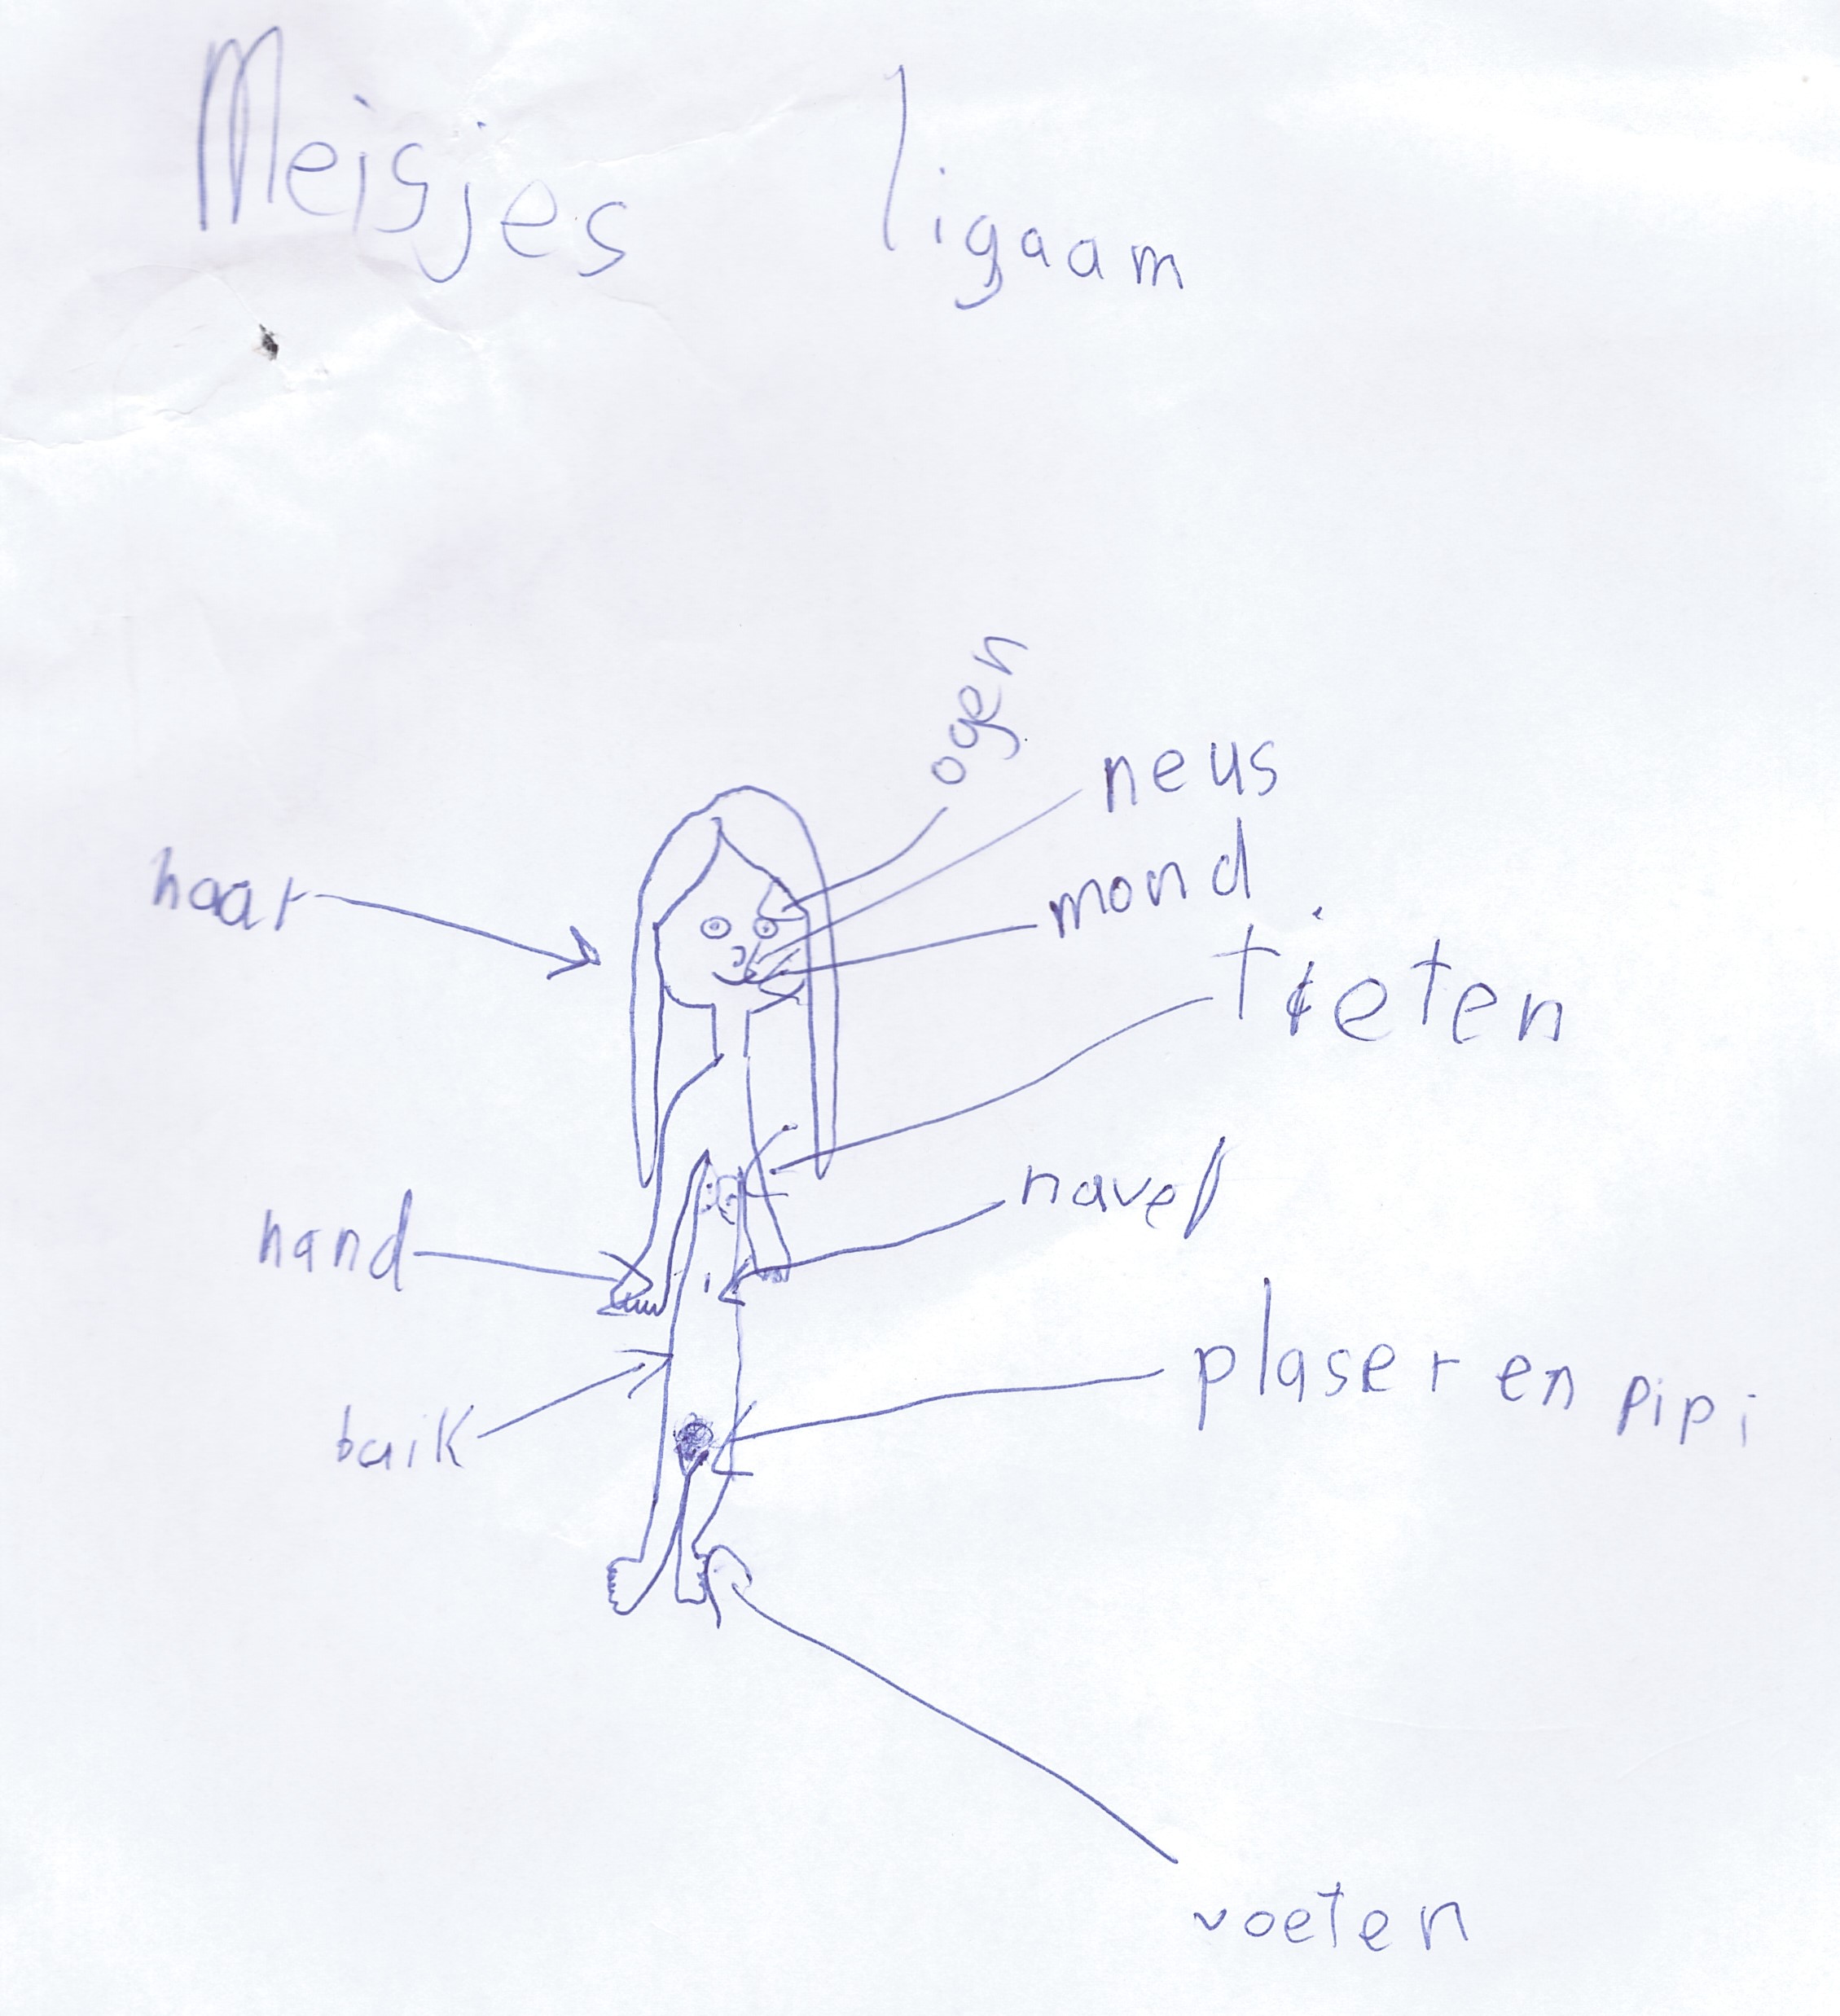 Meisjes ligaam
ogen
neus
haar
mond
tieten
navel
hand
plaser en pipi
baik
voeten